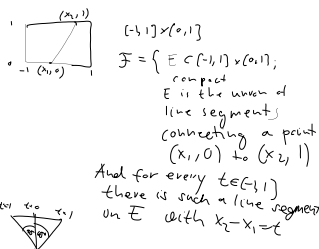 (x₂, 1)
1
0
-1 (x₁, 0) 1
[-1,1] × [0,1]
F = { E ⊂ [-1,1] × [0,1];
compact
E is the union of
line segments
connecting a point
(x₁, 0) to (x₂, 1)
And for every t∈[-1,1]
there is such a line segment
on E with x₂-x₁=t
t=0
t=1